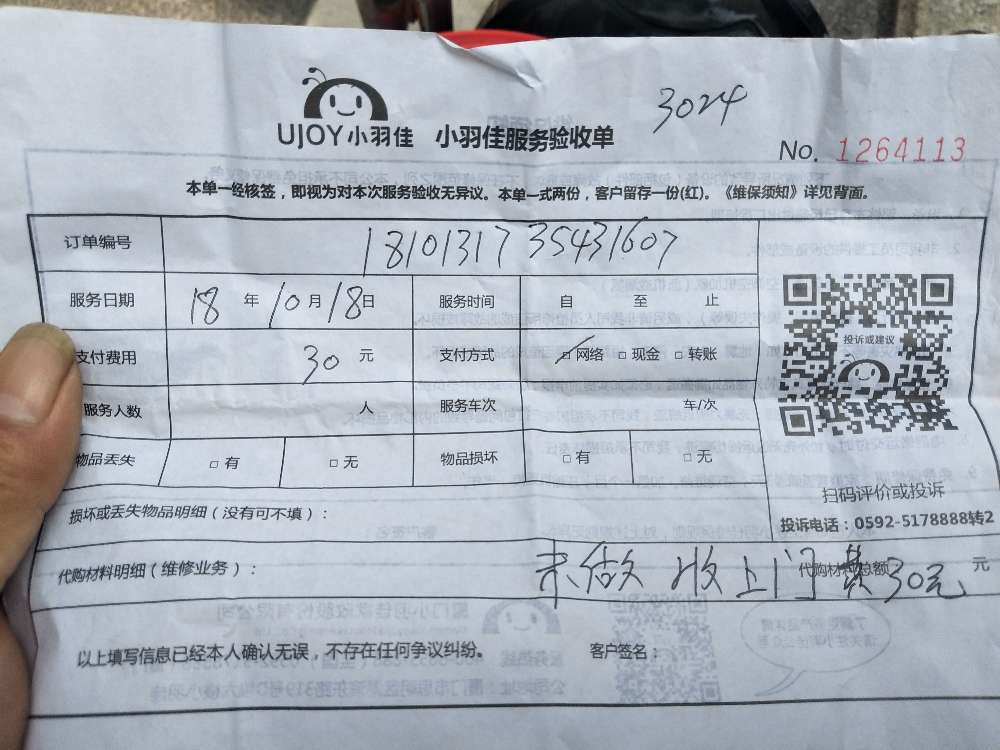 3024
UJOY小羽佳 小羽佳服务验收单
No. 1264113
本单一经核签，即视为对本次服务验收无异议。本单一式两份，客户留存一份(红)。《维保须知》详见背面。
订单编号 1810131735431607
服务日期 18 年 10 月 18 日 服务时间 自 至 止
投诉或建议
支付费用 30 元 支付方式 □ 网络 □ 现金 □ 转账
服务人数 人 服务车次 车/次
物品丢失 □ 有 □ 无 物品损坏 □ 有 □ 无
扫码评价或投诉
损坏或丢失物品明细（没有可不填）：
投诉电话：0592-5178888转2
代购材料明细（维修业务）： 代购材料总额 元
未做 收上门费30元
以上填写信息已经本人确认无误，不存在任何争议纠纷。 客户签名：